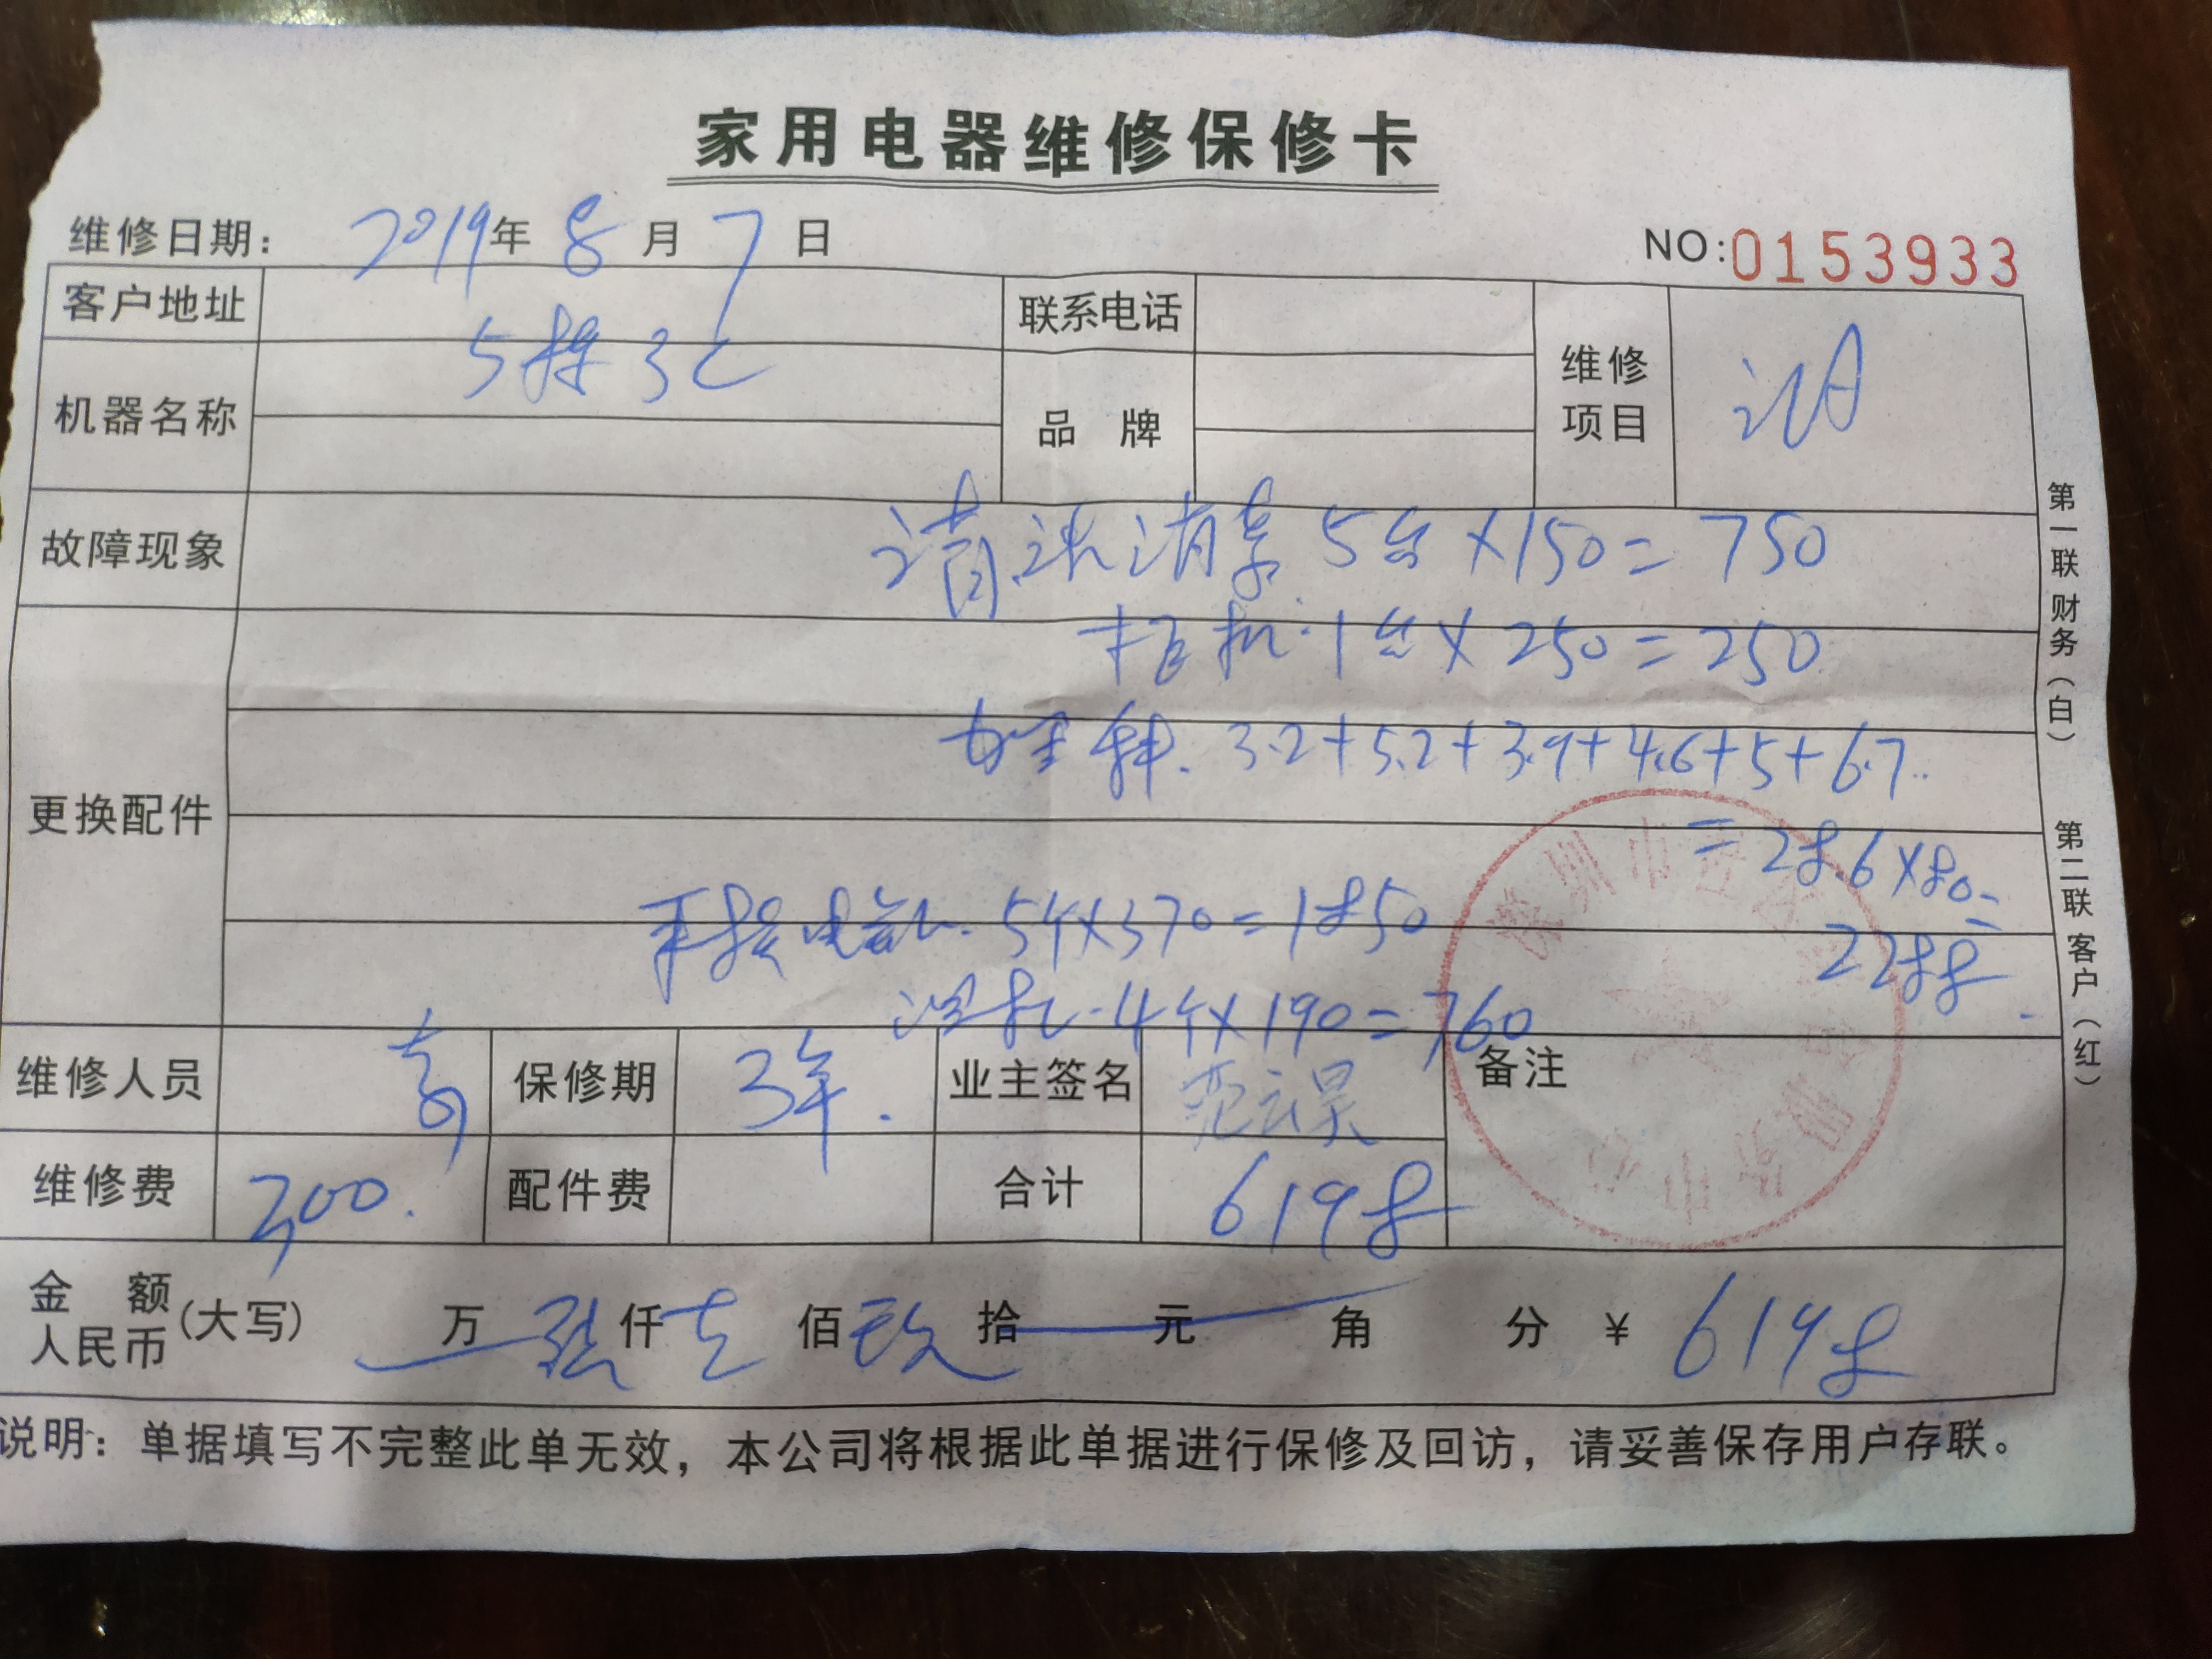 家用电器维修保修卡
维修日期： 2019年 8 月 7 日
NO:0153933
客户地址 5栋3C
联系电话
维修项目
机器名称
品 牌
故障现象 清洗消毒5台×150=750
更换配件 挂机.1台×250=250
3.2+5.2+3.9+4.6+5+6.7
=28.6×80=
2288
电 5个×370=1850
4个×190=760
维修人员
保修期 3年.
业主签名
备注
维修费 300.
配件费
合计 6198
金 额
人民币
(大写) 万 仟 佰 拾 元 角 分 ¥ 6198
说明：单据填写不完整此单无效，本公司将根据此单据进行保修及回访，请妥善保存用户存联。
第一联 财务（白）
第二联 客户（红）
深圳市